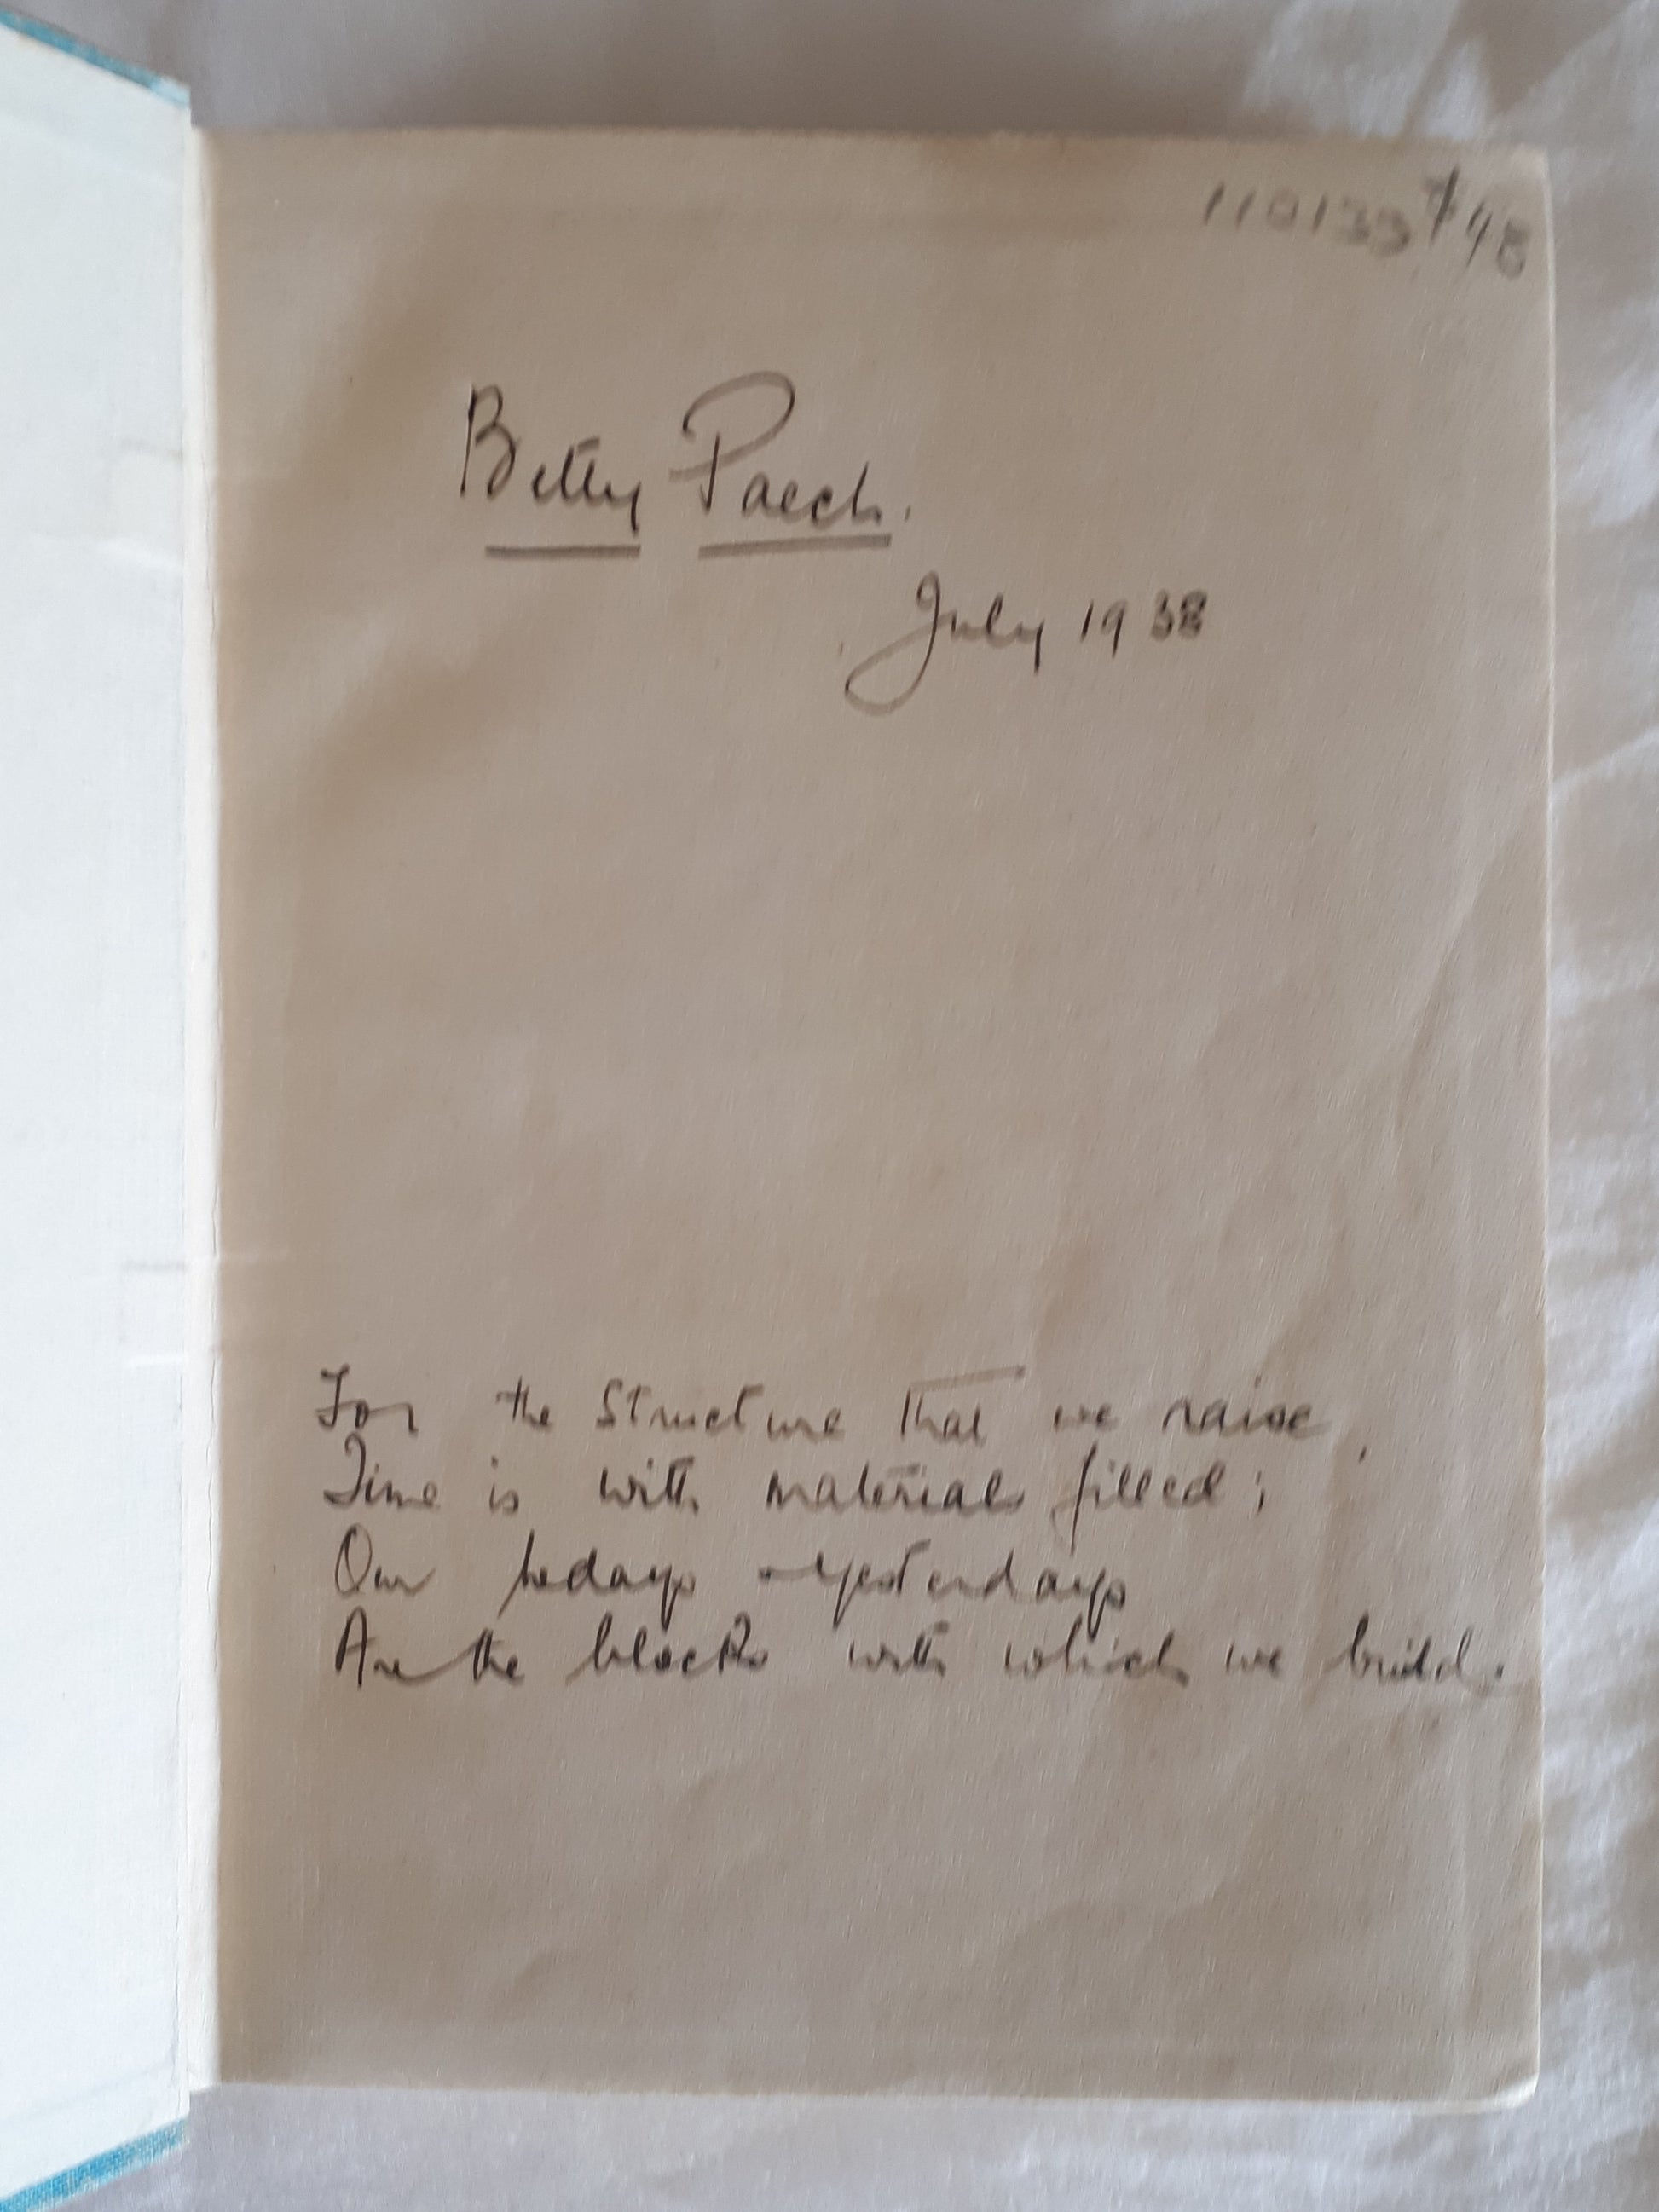 110133 7/48
Betty Paech.
July 1938
For the Structure that we raise,
Time is with materials filled;
Our todays & yesterdays
Are the blocks with which we build.